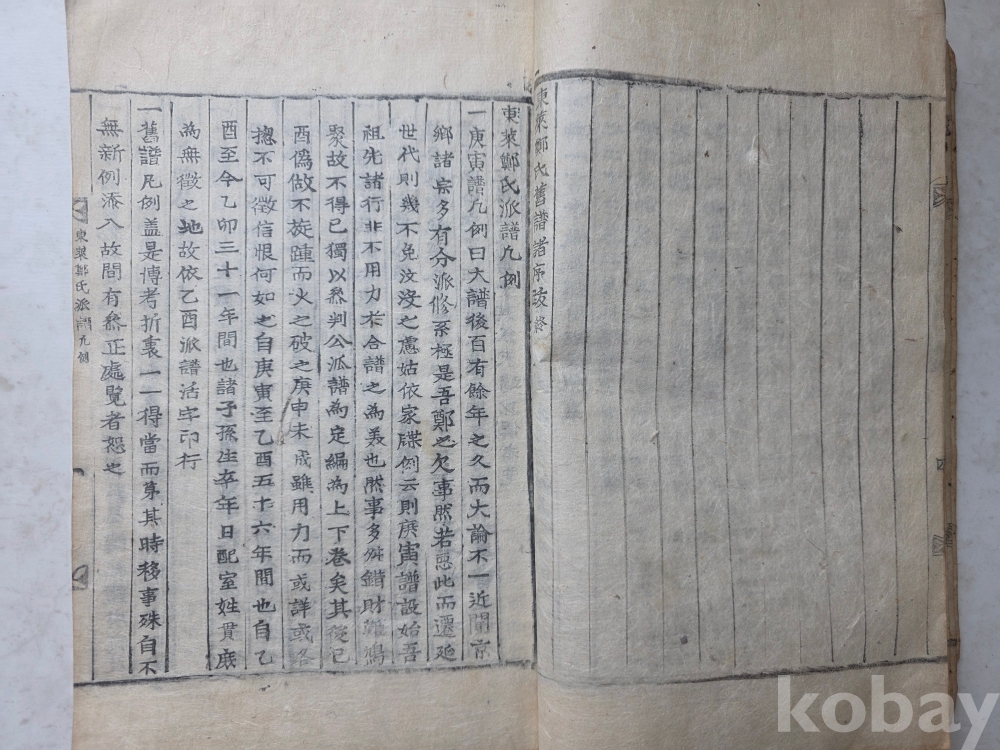 東萊鄭氏舊譜諸序跋終
東萊鄭氏派譜凡例
一庚寅譜凡例曰大譜後百有餘年之久而大論不一近聞京
鄕諸宗多有分派修系極是吾鄭之欠事然若思此而遷延
世代則幾不免汶沒之慮姑依家牒例云則庚寅譜設始吾
祖先諸行非不用力於合譜之爲美也然事多舛錯財難鳩
聚故不得已獨以參判公派譜爲定編爲上下卷矣其後己
酉僞做不旋踵而火之破之庚申未成雖用力而或詳或畧
摠不可徵信恨何如之自庚寅至乙酉五十六年間也自乙
酉至今乙卯三十一年間也諸子孫生卒年日配室姓貫底
爲無徵之地故依乙酉派譜活字印行
一舊譜凡例盖是博考折衷一一得當而第其時移事殊自不
無新例添入故間有參正處覽者恕之
東萊鄭氏派譜凡例
kobay